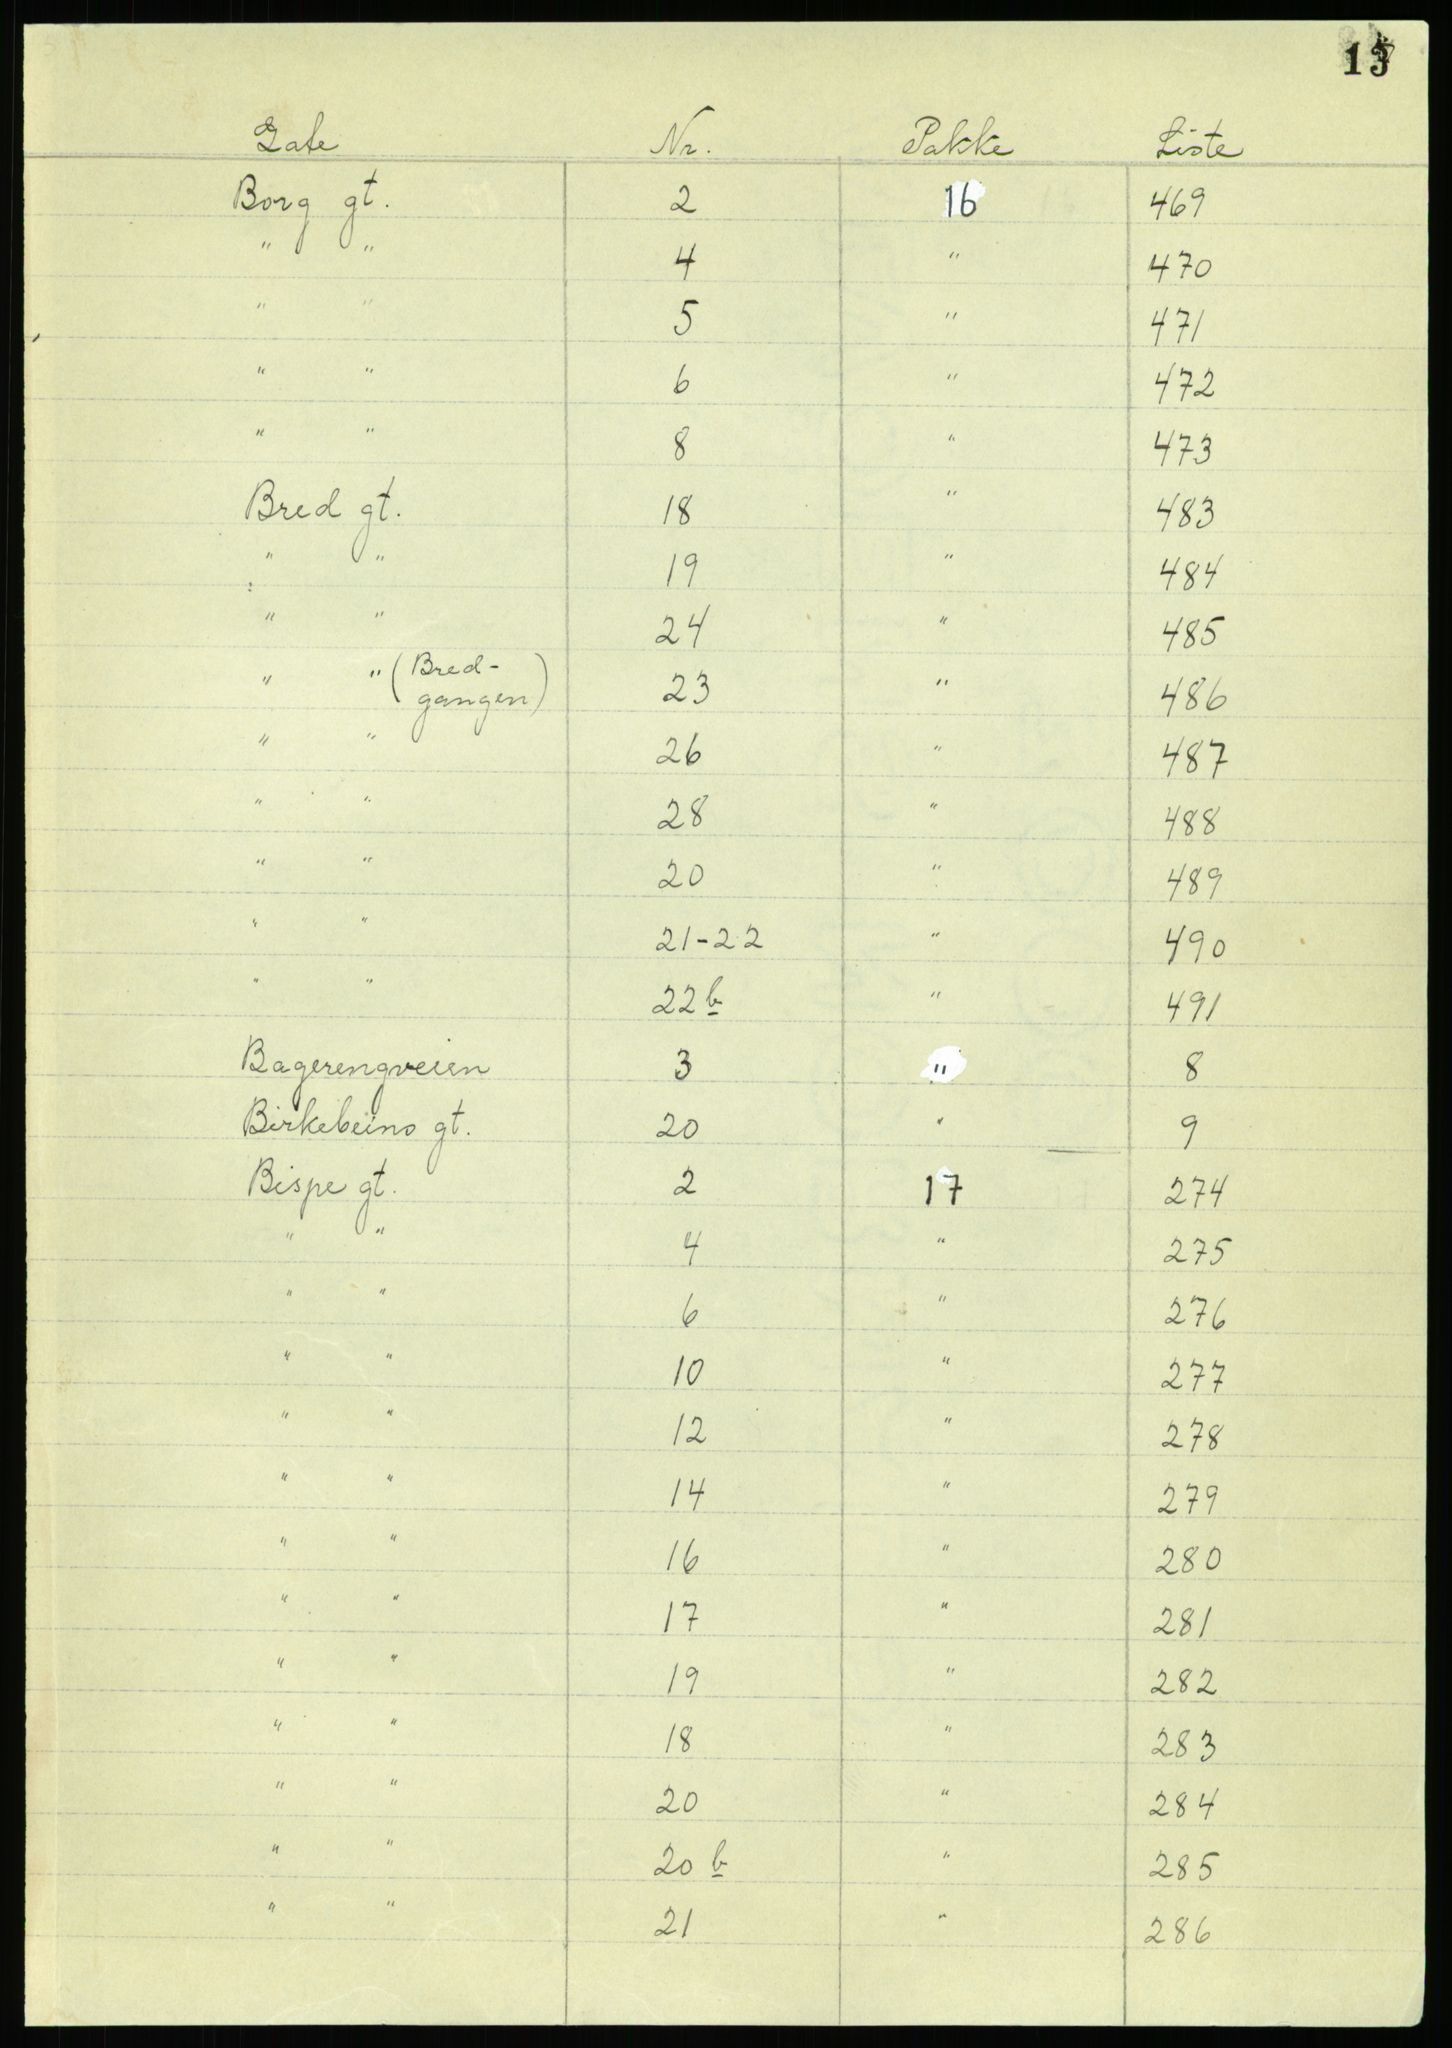 13
Gate Nr. Pakke Liste
Borg gt. 2 16 469
" " 4 " 470
" " 5 " 471
" " 6 " 472
" " 8 " 473
Bred gt. 18 " 483
" " 19 " 484
" " 24 " 485
" " (Bred-
gangen) 23 " 486
" " 26 " 487
" " 28 " 488
" " 20 " 489
" " 21-22 " 490
" " 22b " 491
Bagerengveien 3 " 8
Birkebeins gt. 20 " 9
Bispe gt. 2 17 274
" " 4 " 275
" " 6 " 276
" " 10 " 277
" " 12 " 278
" " 14 " 279
" " 16 " 280
" " 17 " 281
" " 19 " 282
" " 18 " 283
" " 20 " 284
" " 20 b " 285
" " 21 " 286